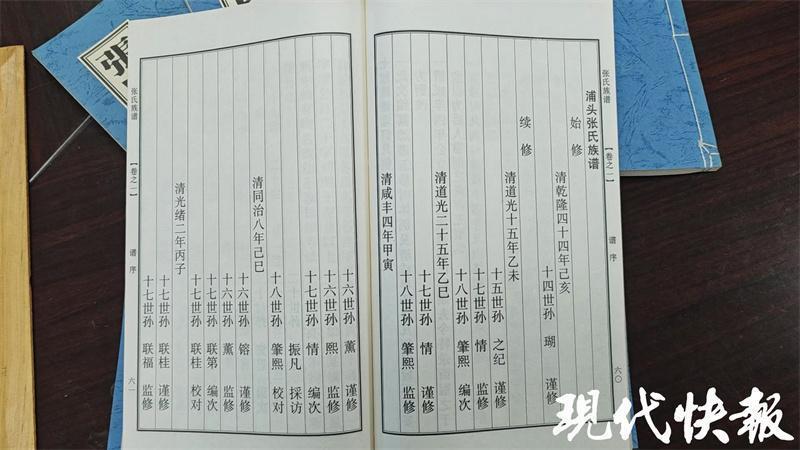 张氏族谱 【卷之一】 谱序 六〇
浦头张氏族谱
始修
清乾隆四十四年己亥
十四世孙 瑚 谨修
续修
清道光十五年乙未
十五世孙 之纪 谨修
十七世孙 情 监修
十八世孙 肇熙 编次
清道光二十五年乙巳
十七世孙 情 谨修
十八世孙 肇熙 监修
清咸丰四年甲寅
十六世孙 薰 谨修
十六世孙 熙 监修
十七世孙 情 编次
振凡 採访
十八世孙 肇熙 校对
清同治八年己巳
十六世孙 镕 谨修
十六世孙 薰 监修
十七世孙 联第 编次
十七世孙 联桂 校对
清光绪二年丙子
十七世孙 联桂 谨修
十七世孙 联福 监修
张氏族谱 【卷之一】 谱序 六一
張
現代快報